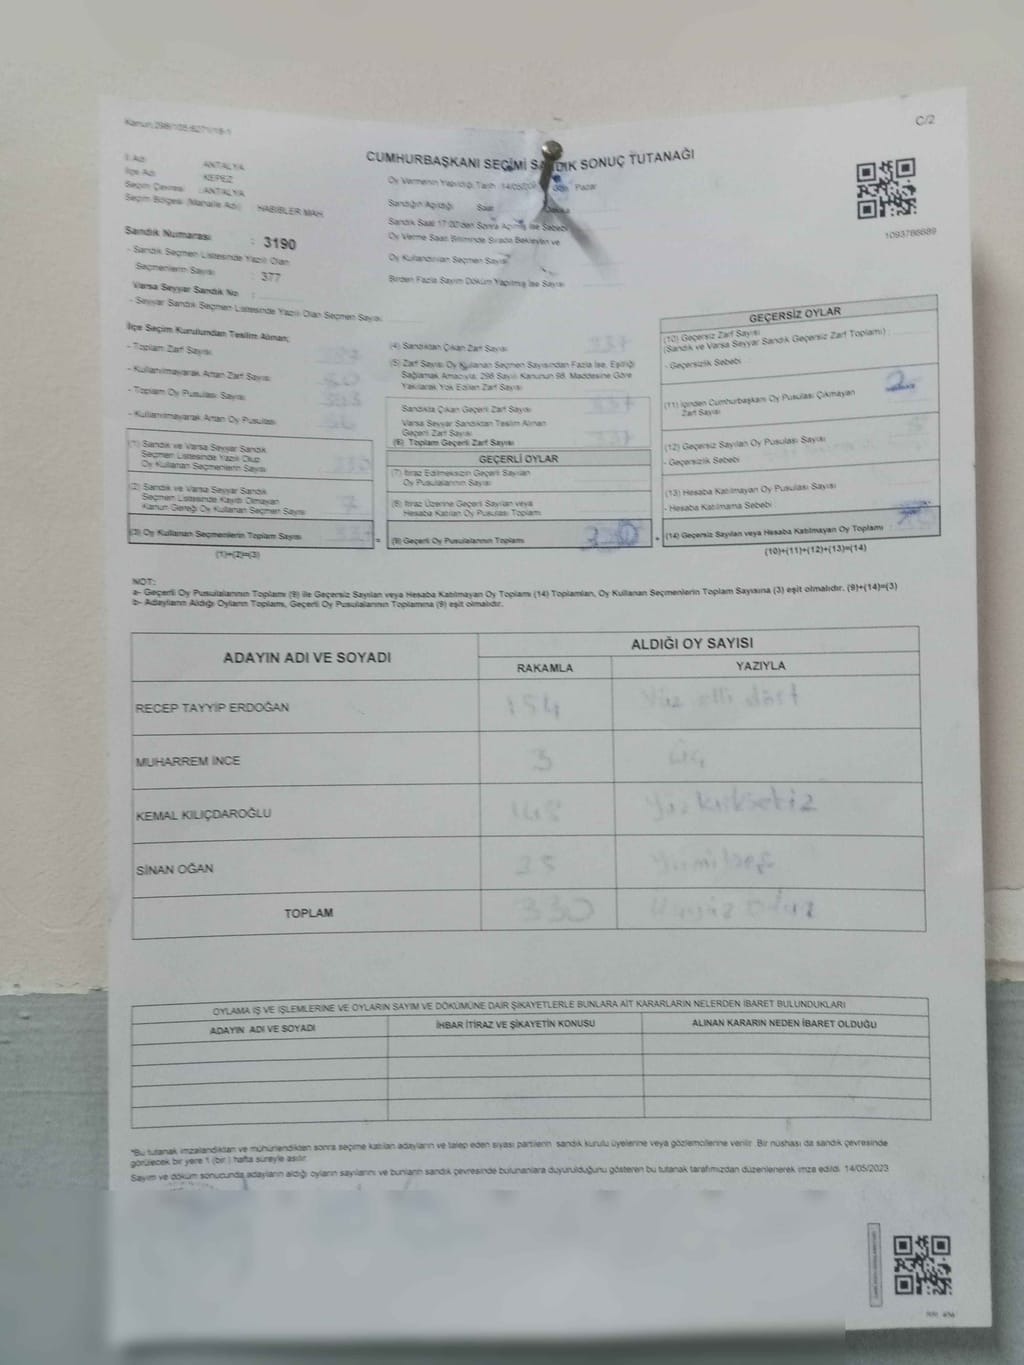 C/2
CUMHURBAŞKANI SEÇİMİ SANDIK SONUÇ TUTANAĞI
İl Adı ANTALYA
İlçe Adı KEPEZ
Seçim Çevresi : ANTALYA
Seçim Bölgesi (Mahalle Adı) HABİBLER MAH
Sandık Numarası : 3190
- Sandık Seçmen Listesinde Yazılı Olan
Seçmenlerin Sayısı : 377
Varsa Seyyar Sandık No :
- Seyyar Sandık Seçmen Listesinde Yazılı Olan Seçmen Sayısı
Oy Vermenin Yapıldığı Tarih Pazar
Sandığın Açıldığı Saat
Sandık Saat 17:00'den Sonra Açılmış İse Sebebi
Oy Verme Saati Bitiminde Sırada Bekleyen ve
Oy Kullandırılan Seçmen Sayısı
Birden Fazla Sayım Döküm Yapılmış İse Sayısı
1093786689
İlçe Seçim Kurulundan Teslim Alınan;
- Toplam Zarf Sayısı
- Kullanılmayarak Artan Zarf Sayısı
- Toplam Oy Pusulası Sayısı
- Kullanılmayarak Artan Oy Pusulası
(1) Sandık ve Varsa Seyyar Sandık
Seçmen Listesinde Yazılı Olup
Oy Kullanan Seçmenlerin Sayısı
(2) Sandık ve Varsa Seyyar Sandık
Seçmen Listesinde Kayıtlı Olmayan
Kanun Gereği Oy Kullanan Seçmen Sayısı 7
(3) Oy Kullanan Seçmenlerin Toplam Sayısı
(1)+(2)=(3)
(4) Sandıktan Çıkan Zarf Sayısı 337
(5) Zarf Sayısı Oy Kullanan Seçmen Sayısından Fazla İse, Eşitliği
Sağlamak Amacıyla, 298 Sayılı Kanunun 98. Maddesine Göre
Yakılarak Yok Edilen Zarf Sayısı
Sandıkta Çıkan Geçerli Zarf Sayısı 337
Varsa Seyyar Sandıktan Teslim Alınan
Geçerli Zarf Sayısı
(6) Toplam Geçerli Zarf Sayısı 337
GEÇERLİ OYLAR
(7) İtiraz Edilmeksizin Geçerli Sayılan
Oy Pusulalarının Sayısı
(8) İtiraz Üzerine Geçerli Sayılan veya
Hesaba Katılan Oy Pusulası Toplamı
= (9) Geçerli Oy Pusulalarının Toplamı 330
GEÇERSİZ OYLAR
(10) Geçersiz Zarf Sayısı
(Sandık ve Varsa Seyyar Sandık Geçersiz Zarf Toplamı) :
- Geçersizlik Sebebi
(11) İçinden Cumhurbaşkanı Oy Pusulası Çıkmayan
Zarf Sayısı
(12) Geçersiz Sayılan Oy Pusulası Sayısı
- Geçersizlik Sebebi
(13) Hesaba Katılmayan Oy Pusulası Sayısı
- Hesaba Katılmama Sebebi
+ (14) Geçersiz Sayılan veya Hesaba Katılmayan Oy Toplamı
(10)+(11)+(12)+(13)=(14)
NOT:
a- Geçerli Oy Pusulalarının Toplamı (9) ile Geçersiz Sayılan veya Hesaba Katılmayan Oy Toplamı (14) Toplamları, Oy Kullanan Seçmenlerin Toplam Sayısına (3) eşit olmalıdır. (9)+(14)=(3)
b- Adayların Aldığı Oyların Toplamı, Geçerli Oy Pusulalarının Toplamına (9) eşit olmalıdır.
ADAYIN ADI VE SOYADI ALDIĞI OY SAYISI
RAKAMLA YAZIYLA
RECEP TAYYİP ERDOĞAN 154 Yüz elli dört
MUHARREM İNCE 3 Üç
KEMAL KILIÇDAROĞLU 148 Yüz kırksekiz
SİNAN OĞAN 25 Yirmibeş
TOPLAM 330 Üçyüz Otuz
OYLAMA İŞ VE İŞLEMLERİNE VE OYLARIN SAYIM VE DÖKÜMÜNE DAİR ŞİKAYETLERLE BUNLARA AİT KARARLARIN NELERDEN İBARET BULUNDUKLARI
ADAYIN ADI VE SOYADI İHBAR İTİRAZ VE ŞİKAYETİN KONUSU ALINAN KARARIN NEDEN İBARET OLDUĞU
*Bu tutanak imzalandıktan ve mühürlendikten sonra seçime katılan adayların ve talep eden siyasi partilerin sandık kurulu üyelerine veya gözlemcilerine verilir. Bir nüshası da sandık çevresinde
görülecek bir yere 1 (bir) hafta süreyle asılır.
Sayım ve döküm sonucunda adayların aldığı oyların sayılarını ve bunların sandık çevresinde bulunanlara duyurulduğunu gösteren bu tutanak tarafımızdan düzenlenerek imza edildi. 14/05/2023